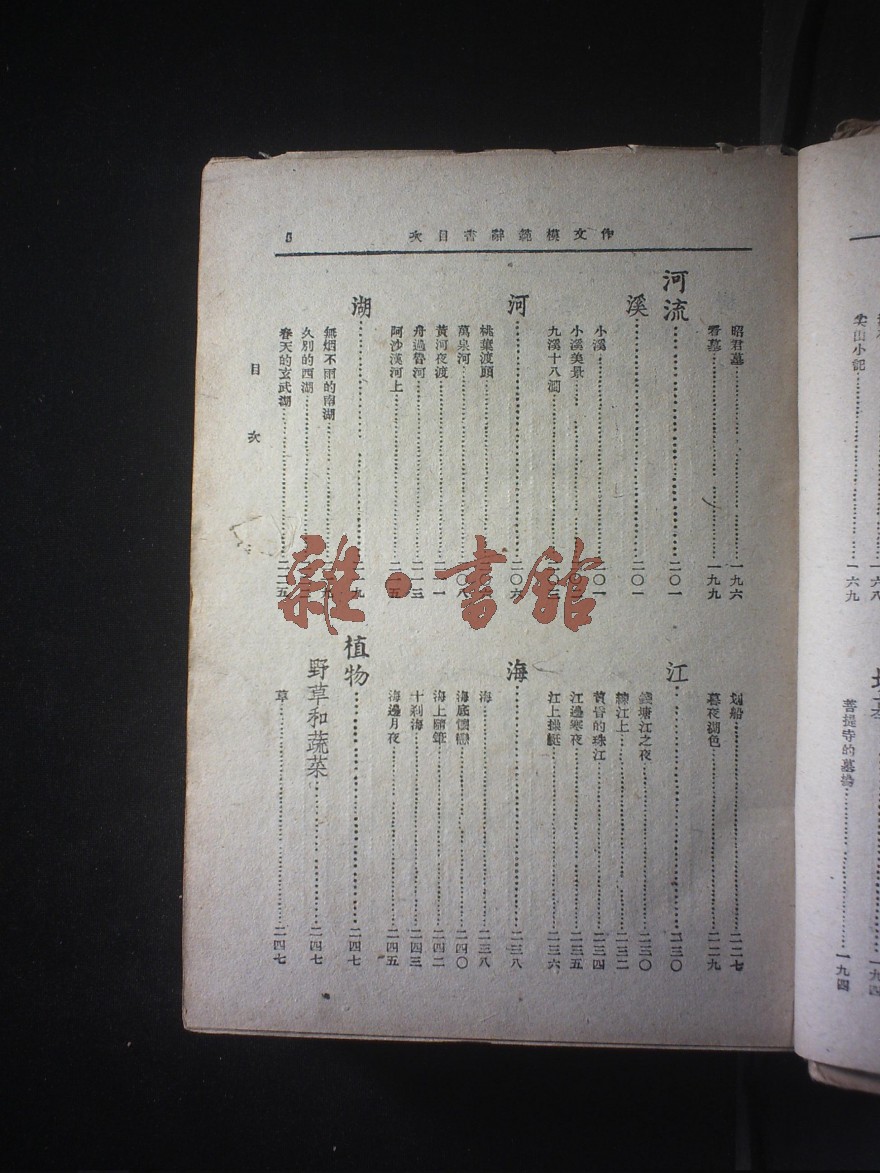 作文模範辭書目次
5
昭君墓 一九六
看墓 一九九
河流 二〇一
溪 二〇一
小溪 二〇一
小溪美景
九溪十八澗
河 二〇六
桃葉渡頭
萬泉河 〇八
黃河夜渡 一一
舟過魯河 二一三
阿沙漠河上
湖 九
無烟不雨的南湖
久別的西湖
春天的玄武湖 二二五
划船 二二七
暮夜湖色 二二九
江 二三〇
錢塘江之夜 二三〇
江上 二三二
黃昏的珠江 二三四
江邊寒夜 二三五
江上操艇 二三六
海 二三八
海 二三八
海底懷戀 二四〇
海上 二四二
十刹海 二四三
海邊月夜 二四五
植物 二四七
野草和蔬菜 二四七
草 二四七
目次
雜·書館
尖山小記 一六九
菩提寺的墓場 一九四